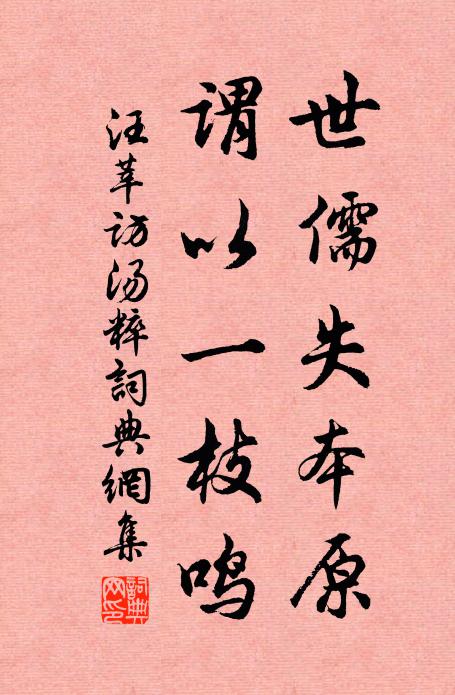 世儒失本原
謂以一枝鳴
汪莘访汤粹詞典網集
詞典网印